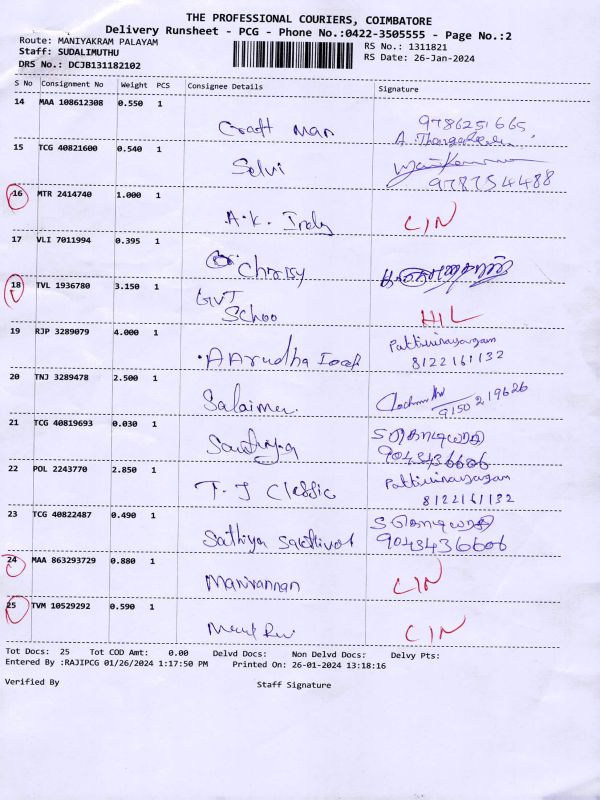 THE PROFESSIONAL COURIERS, COIMBATORE
Delivery Runsheet - PCG - Phone No.:0422-3505555 - Page No.:2
Route: MANIYAKRAM PALAYAM
RS No.: 1311821
Staff: SUDALIMUTHU
RS Date: 26-Jan-2024
DRS No.: DCJB131182102
S No Consignment No Weight PCS Consignee Details Signature
14 MAA 108612308 0.550 1
Craft man 9786251665
15 TCG 40821600 0.540 1
Selvi 9787354488
16 MTR 2414740 1.000 1
A.K. Indy CIN
17 VLI 7011994 0.395 1
Chrisy
18 TVL 1936780 3.150 1
GVT
Schoo HIL
19 RJP 3289079 4.000 1 Pattivinayagam
AArudha 8122161132
20 TNJ 3289478 2.500 1
Salaimer 9150219626
21 TCG 40819693 0.030 1
Sathiya 9043436606
22 POL 2243770 2.850 1 Pattivinayagam
T. J Classic 8122161132
23 TCG 40822487 0.490 1
Sathiya Sakthivel 9043436606
24 MAA 863293729 0.880 1
Manivannan CIN
25 TVM 10529292 0.590 1
CIN
Tot Docs: 25 Tot COD Amt: 0.00 Delvd Docs: Non Delvd Docs: Delvy Pts:
Entered By :RAJIPCG 01/26/2024 1:17:50 PM Printed On: 26-01-2024 13:18:16
Verified By Staff Signature